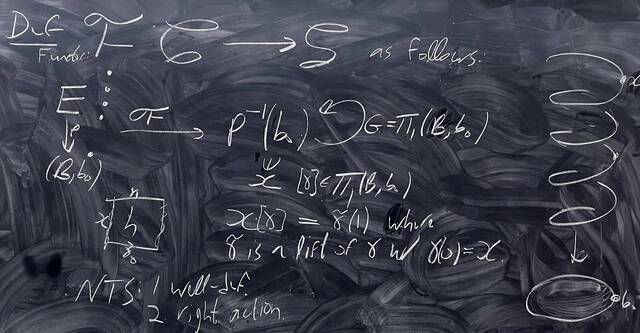 Def Functor F: C → S as follows:
E →F p⁻¹(b₀) ↺ G = π₁(B, b₀)
↓p
(B, b₀)
x [γ] ∈ π₁(B, b₀)
x[γ] = γ̃(1) where
γ̃ is a lift of γ w/ γ̃(0) = x.
x h
γ₀
NTS: 1 well-def.
2 right action.
x
b₀